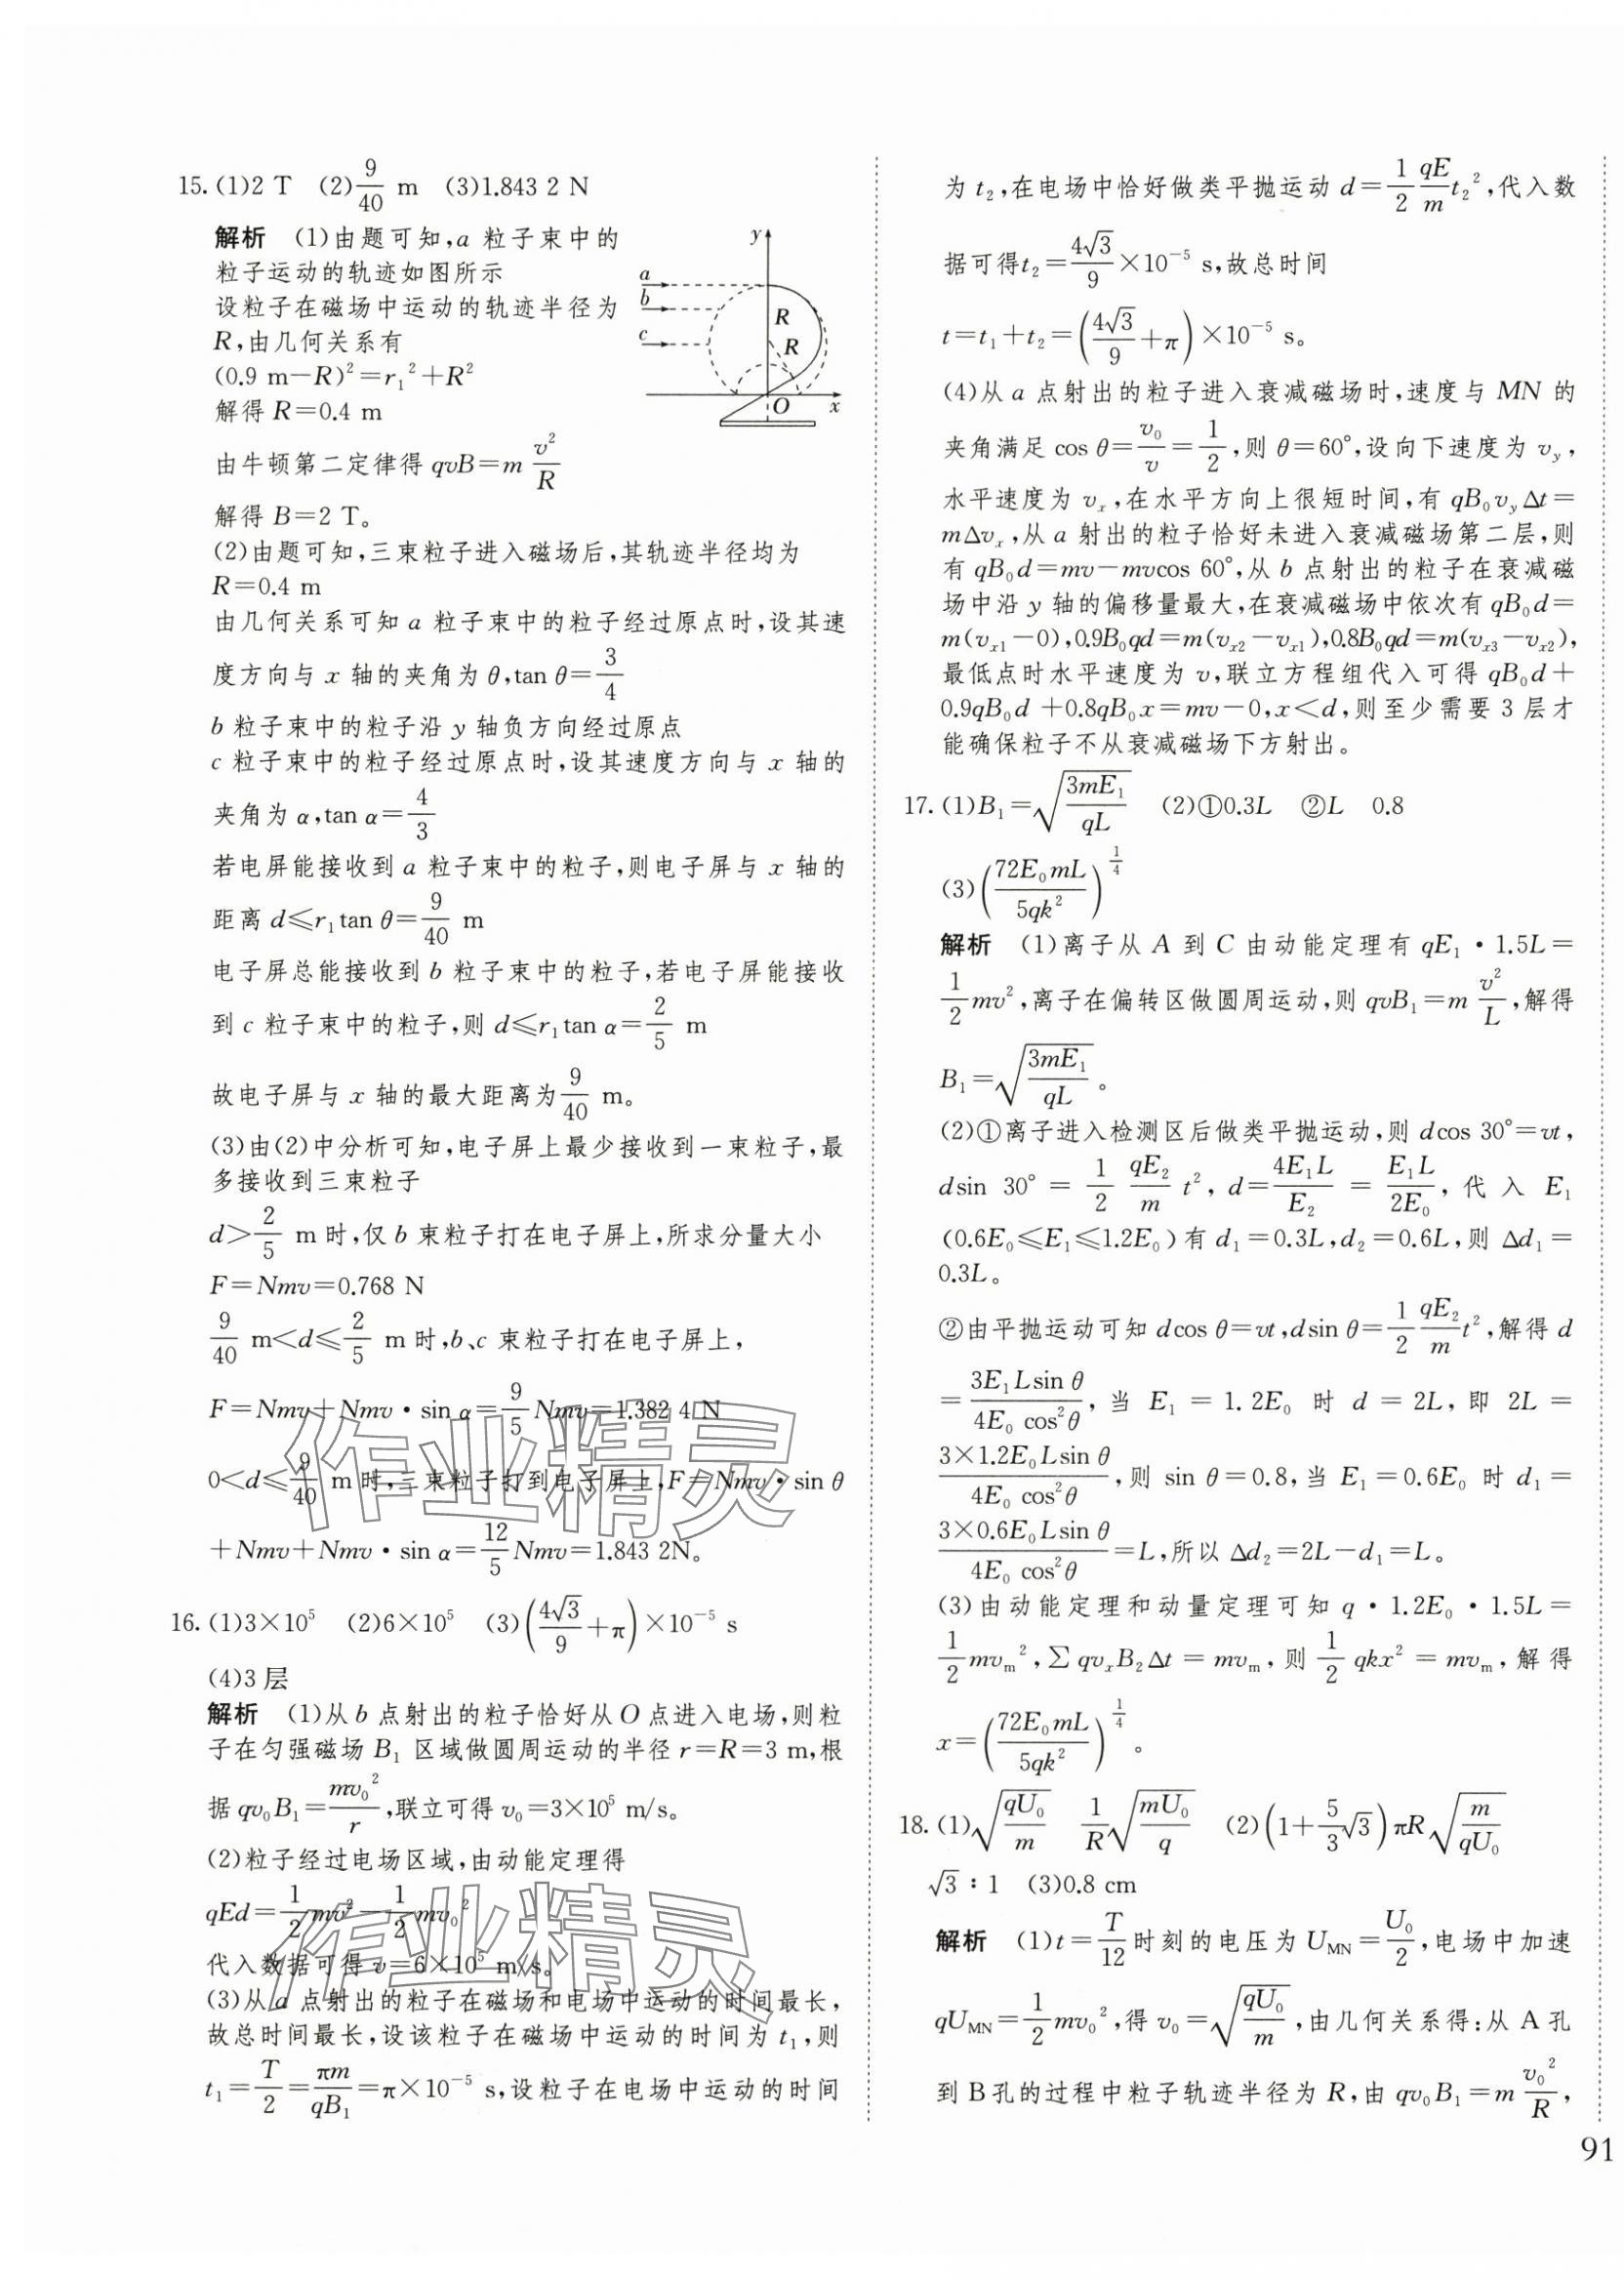 15. (1)2 T (2)9/40 m (3)1.843 2 N
解析 (1)由题可知,a 粒子束中的
粒子运动的轨迹如图所示
设粒子在磁场中运动的轨迹半径为
R,由几何关系有
(0.9 m−R)²=r₁²+R²
解得 R=0.4 m
由牛顿第二定律得 qvB=m v²/R
解得 B=2 T。
y
a
b
c
R
R
O
x
(2)由题可知,三束粒子进入磁场后,其轨迹半径均为
R=0.4 m
由几何关系可知 a 粒子束中的粒子经过原点时,设其速
度方向与 x 轴的夹角为 θ,tan θ=3/4
b 粒子束中的粒子沿 y 轴负方向经过原点
c 粒子束中的粒子经过原点时,设其速度方向与 x 轴的
夹角为 α,tan α=4/3
若电屏能接收到 a 粒子束中的粒子,则电子屏与 x 轴的
距离 d≤r₁tan θ=9/40 m
电子屏总能接收到 b 粒子束中的粒子,若电子屏能接收
到 c 粒子束中的粒子,则 d≤r₁tan α=2/5 m
故电子屏与 x 轴的最大距离为9/40 m。
(3)由(2)中分析可知,电子屏上最少接收到一束粒子,最
多接收到三束粒子
d>2/5 m时,仅 b 束粒子打在电子屏上,所求分量大小
F=Nmv=0.768 N
9/40 m<d≤2/5 m时,b、c 束粒子打在电子屏上,
F=Nmv+Nmv·sin α=9/5 Nmv=1.382 4 N
0<d≤9/40 m时,三束粒子打到电子屏上,F=Nmv·sin θ
+Nmv+Nmv·sin α=12/5 Nmv=1.843 2N。
16. (1)3×10⁵ (2)6×10⁵ (3)(4√3/9+π)×10⁻⁵ s
(4)3 层
解析 (1)从 b 点射出的粒子恰好从O 点进入电场,则粒
子在匀强磁场 B₁ 区域做圆周运动的半径 r=R=3 m,根
据 qv₀B₁=mv₀²/r,联立可得 v₀=3×10⁵ m/s。
(2)粒子经过电场区域,由动能定理得
qEd=1/2 mv²−1/2 mv₀²
代入数据可得 v=6×10⁵ m/s。
(3)从 a 点射出的粒子在磁场和电场中运动的时间最长,
故总时间最长,设该粒子在磁场中运动的时间为 t₁,则
t₁=T/2=πm/qB₁=π×10⁻⁵ s,设粒子在电场中运动的时间
为 t₂,在电场中恰好做类平抛运动 d=1/2 qE/m t₂²,代入数
据可得t₂=4√3/9×10⁻⁵ s,故总时间
t=t₁+t₂=(4√3/9+π)×10⁻⁵ s。
(4)从 a 点射出的粒子进入衰减磁场时,速度与 MN 的
夹角满足 cos θ=v₀/v=1/2,则 θ=60°,设向下速度为 v_y,
水平速度为 v_x,在水平方向上很短时间,有 qB₀v_yΔt=
mΔv_x,从 a 射出的粒子恰好未进入衰减磁场第二层,则
有 qB₀d=mv−mvcos 60°,从 b 点射出的粒子在衰减磁
场中沿 y 轴的偏移量最大,在衰减磁场中依次有 qB₀d=
m(v_x1−0),0.9B₀qd=m(v_x2−v_x1),0.8B₀qd=m(v_x3−v_x2),
最低点时水平速度为 v,联立方程组代入可得 qB₀d+
0.9qB₀d+0.8qB₀x=mv−0,x<d,则至少需要 3 层才
能确保粒子不从衰减磁场下方射出。
17. (1)B₁=√(3mE₁/qL) (2)①0.3L ②L 0.8
(3)(72E₀mL/5qk²)^(1/4)
解析 (1)离子从 A 到 C 由动能定理有 qE₁·1.5L=
1/2 mv²,离子在偏转区做圆周运动,则 qvB₁=m v²/L,解得
B₁=√(3mE₁/qL)。
(2)①离子进入检测区后做类平抛运动,则 dcos 30°=vt,
dsin 30°=1/2 qE₂/m t²,d=4E₁L/E₂=E₁L/2E₀,代入 E₁
(0.6E₀≤E₁≤1.2E₀)有 d₁=0.3L,d₂=0.6L,则 Δd₁=
0.3L。
②由平抛运动可知 dcos θ=vt,dsin θ=1/2 qE₂/m t²,解得 d
=3E₁Lsin θ/4E₀ cos²θ,当 E₁=1.2E₀ 时 d=2L,即 2L=
3×1.2E₀Lsin θ/4E₀ cos²θ,则 sin θ=0.8,当 E₁=0.6E₀ 时 d₁=
3×0.6E₀Lsin θ/4E₀ cos²θ=L,所以 Δd₂=2L−d₁=L。
(3)由动能定理和动量定理可知 q·1.2E₀·1.5L=
1/2 mv_m²,∑qv_xB₂Δt=mv_m,则 1/2 qkx²=mv_m,解得
x=(72E₀mL/5qk²)^(1/4)。
18. (1)√(qU₀/m) 1/R √(mU₀/q) (2)(1+5/3√3)πR√(m/qU₀)
√3∶1 (3)0.8 cm
解析 (1)t=T/12时刻的电压为 U_MN=U₀/2,电场中加速
qU_MN=1/2 mv₀²,得 v₀=√(qU₀/m),由几何关系得:从 A孔
到 B孔的过程中粒子轨迹半径为 R,由 qv₀B₁=m v₀²/R,
91
作业精灵
作业精灵